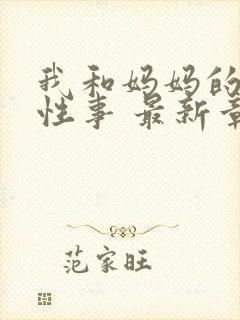 我和妈妈的
性事 最新章
范家旺